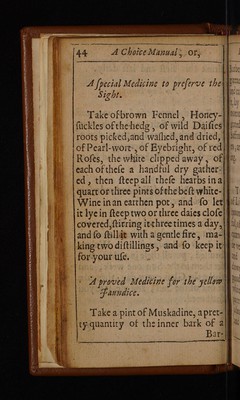 44 A Choice Manual, or,
A special Medicine to preserve the
Sight.
Take of brown Fennel, Honey-
suckles of the hedg, of wild Daisies
roots picked, and washed, and dried,
of Pearl-wort, of Eyebright, of red
Roses, the white clipped away, of
each of these a handful dry gather-
ed, then steep all these hearbs in a
quart or three pints of the best white-
Wine in an earthen pot, and so let
it lye in steep two or three daies close
covered, stirring it three times a day,
and so still it with a gentle fire, ma-
king two distillings, and so keep it
for your use.
A proved Medicine for the yellow
Jaundice.
Take a pint of Muskadine, a pret-
ty quantity of the inner bark of a
Bar-